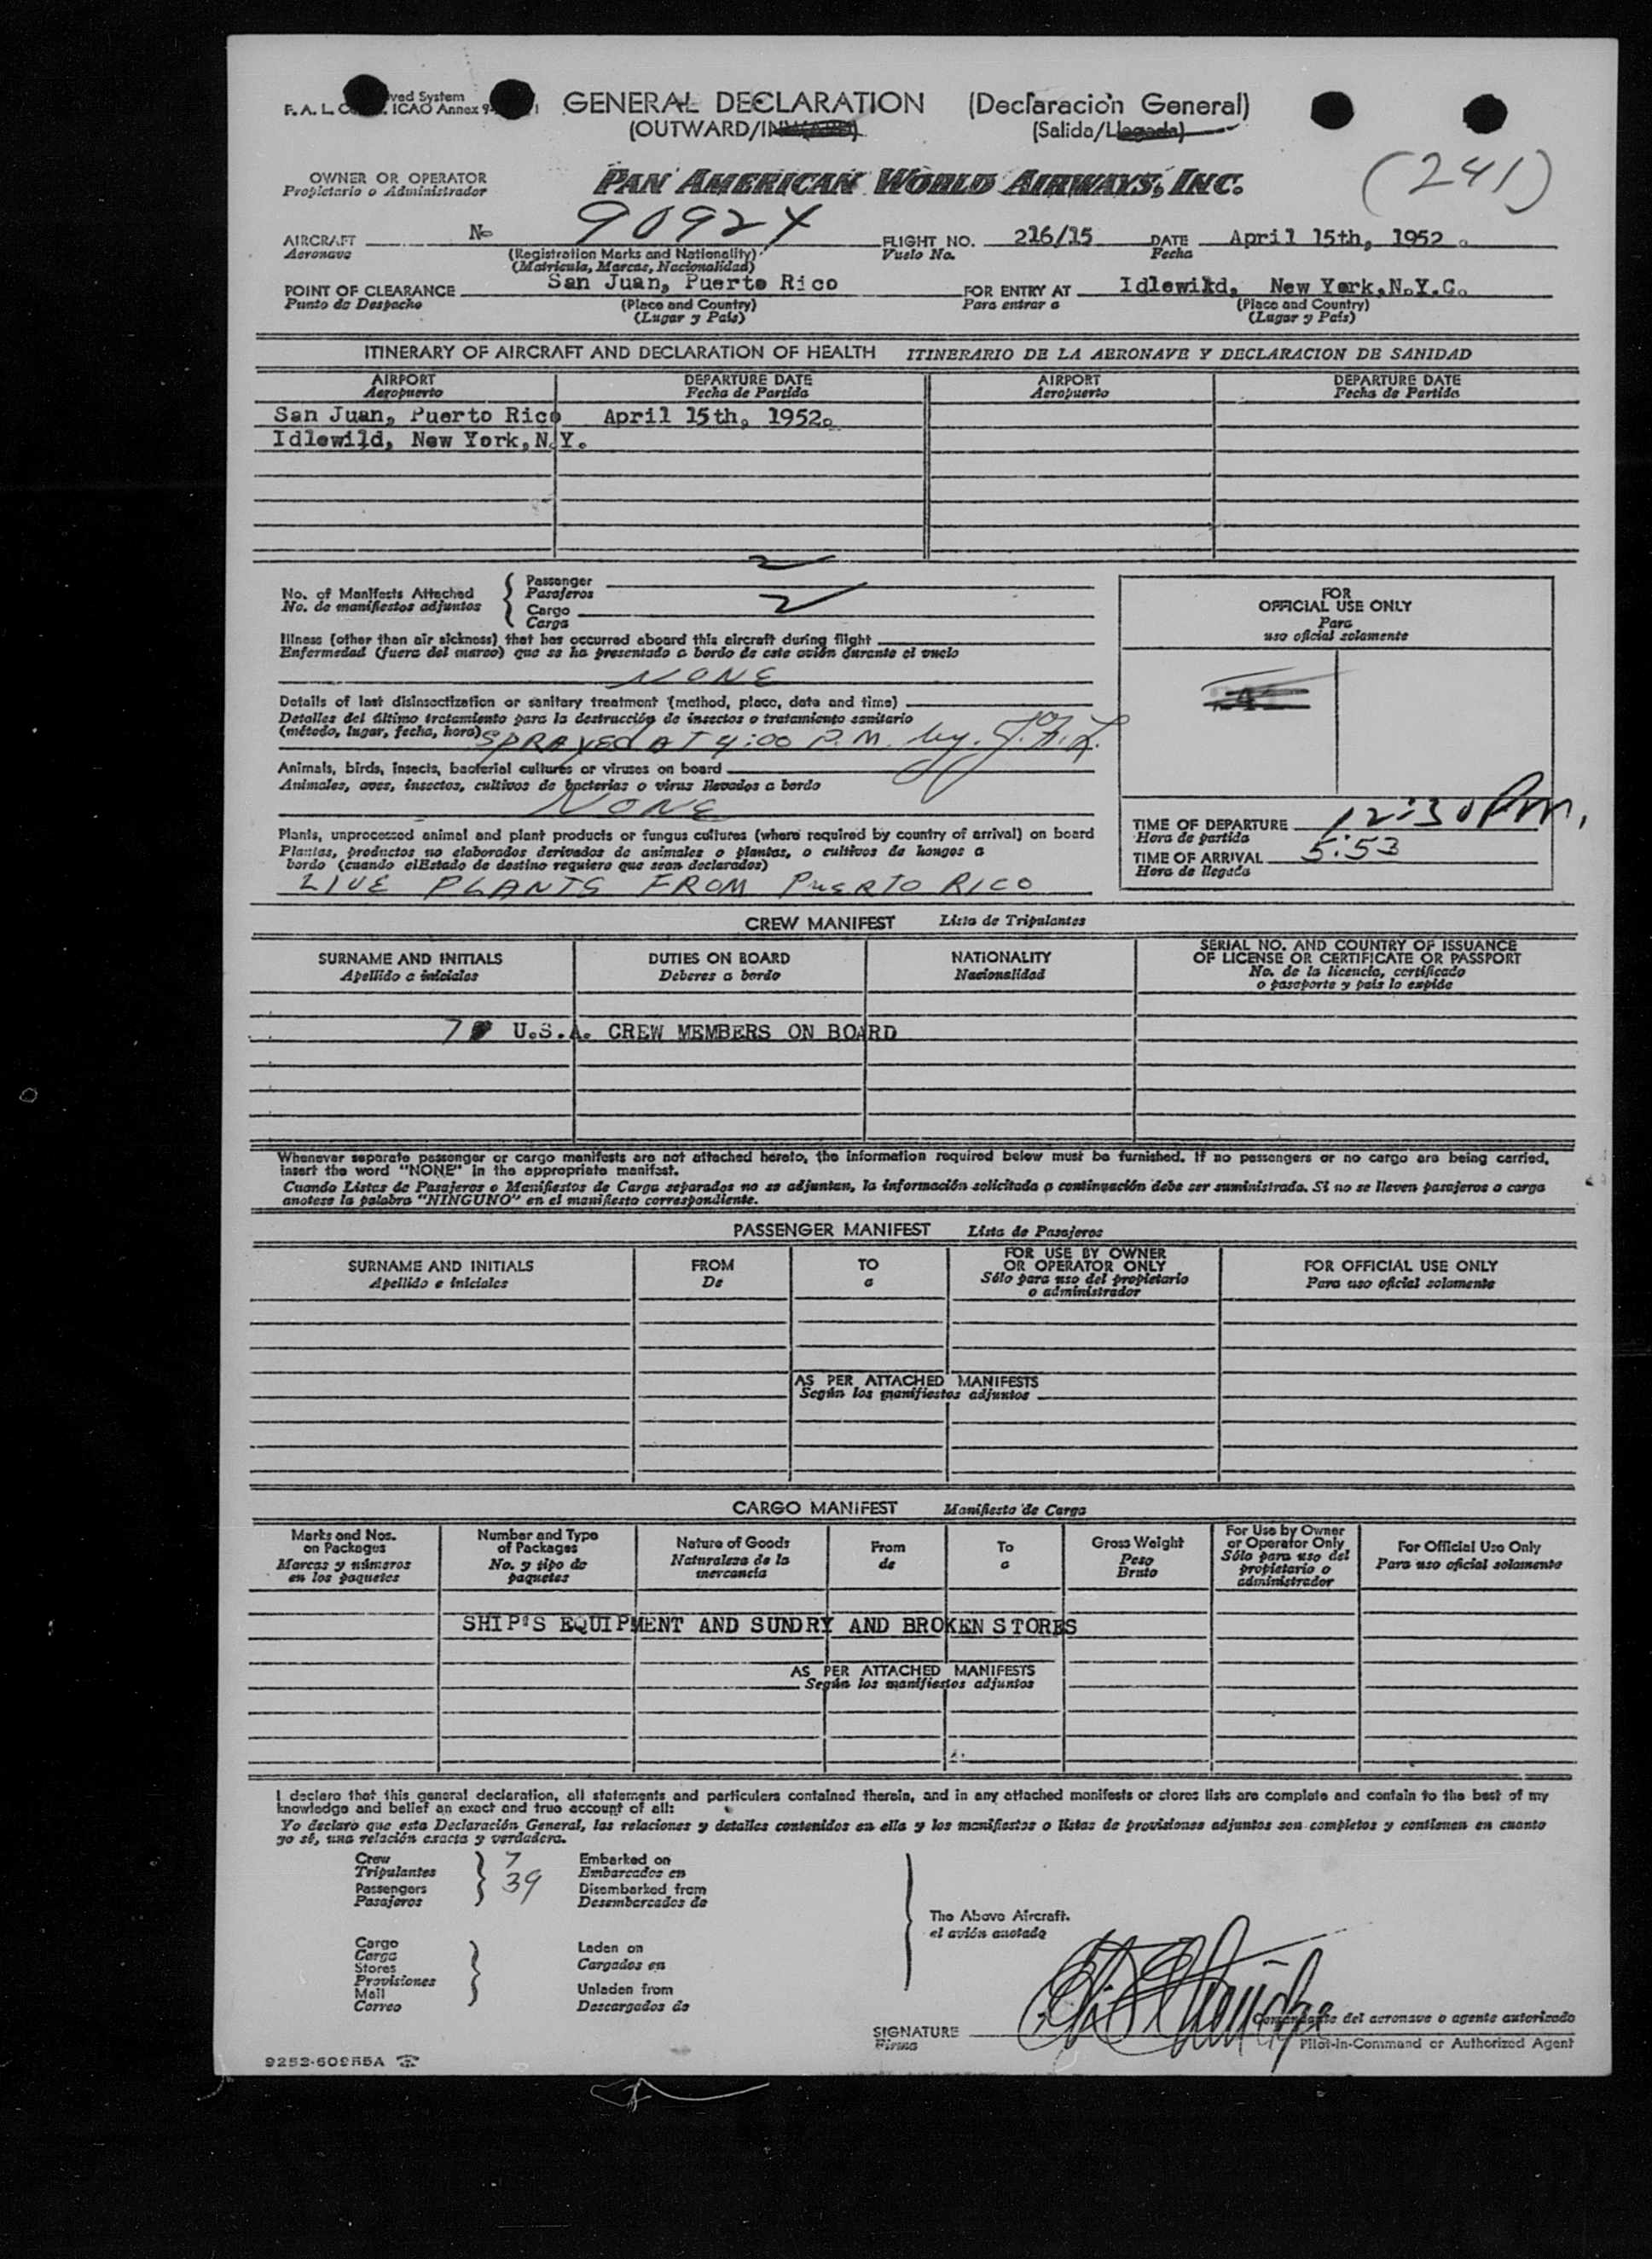 F. A. L. ICAO Annex 9
GENERAL DECLARATION (Declaración General)
(OUTWARD/INWARD) (Salida/Llegada)
(241)
OWNER OR OPERATOR
Propietario o Administrador
PAN AMERICAN WORLD AIRWAYS, INC.
AIRCRAFT No 9092 FLIGHT NO. 216/15 DATE April 15th, 1952.
Aeronave (Registration Marks and Nationality) Vuelo No. Fecha
(Matricula, Marcas, Nacionalidad)
POINT OF CLEARANCE San Juan, Puerto Rico FOR ENTRY AT Idlewild, New York, N.Y.C.
Punto de Despacho (Place and Country) Para entrar a (Place and Country)
(Lugar y País) (Lugar y País)
ITINERARY OF AIRCRAFT AND DECLARATION OF HEALTH ITINERARIO DE LA AERONAVE Y DECLARACION DE SANIDAD
AIRPORT DEPARTURE DATE AIRPORT DEPARTURE DATE
Aeropuerto Fecha de Partida Aeropuerto Fecha de Partida
San Juan, Puerto Rico April 15th, 1952.
Idlewild, New York, N.Y.
No. of Manifests Attached Passenger 2
No. de manifiestos adjuntos Pasajeros
Cargo 2
Carga
Illness (other than air sickness) that has occurred aboard this aircraft during flight
Enfermedad (fuera del mareo) que se ha presentado a bordo de este avión durante el vuelo
NONE
Details of last disinsectization or sanitary treatment (method, place, date and time)
Detalles del último tratamiento para la destrucción de insectos o tratamiento sanitario
(método, lugar, fecha, hora) SPRAYED AT 4:00 P.M. by.
Animals, birds, insects, bacterial cultures or viruses on board
Animales, aves, insectos, cultivos de bacterias o virus llevados a bordo
NONE
Plants, unprocessed animal and plant products or fungus cultures (where required by country of arrival) on board
Plantas, productos no elaborados derivados de animales o plantas, o cultivos de hongos a
bordo (cuando elEstado de destino requiere que sean declarados)
LIVE PLANTS FROM PUERTO RICO
FOR
OFFICIAL USE ONLY
Para
uso oficial solamente
TIME OF DEPARTURE 12:30 Pm.
Hora de partida
TIME OF ARRIVAL 5:53
Hora de llegada
CREW MANIFEST Lista de Tripulantes
SURNAME AND INITIALS DUTIES ON BOARD NATIONALITY SERIAL NO. AND COUNTRY OF ISSUANCE
OF LICENSE OR CERTIFICATE OR PASSPORT
Apellido a iniciales Deberes a bordo Nacionalidad No. de la licencia, certificado
o pasaporte y país lo expide
7 U.S.A. CREW MEMBERS ON BOARD
Whenever separate passenger or cargo manifests are not attached hereto, the information required below must be furnished. If no passengers or no cargo are being carried,
insert the word "NONE" in the appropriate manifest.
Cuando Listas de Pasajeros o Manifiestos de Carga separados no se adjuntan, la información solicitada a continuación debe ser suministrada. Si no se lleven pasajeros o carga
anotese la palabra "NINGUNO" en el manifiesto correspondiente.
PASSENGER MANIFEST Lista de Pasajeros
SURNAME AND INITIALS FROM TO FOR USE BY OWNER FOR OFFICIAL USE ONLY
OR OPERATOR ONLY
Apellido e iniciales De a Sólo para uso del propietario Para uso oficial solamente
o administrador
AS PER ATTACHED MANIFESTS
Según los manifiestos adjuntos
CARGO MANIFEST Manifiesto de Carga
Marks and Nos. Number and Type Nature of Goods From To Gross Weight For Use by Owner For Official Use Only
on Packages of Packages Naturaleza de la de a Peso or Operator Only Para uso oficial solamente
Marcas y números No. y tipo de mercancía Bruto Sólo para uso del
en los paquetes paquetes propietario o
administrador
SHIP'S EQUIPMENT AND SUNDRY AND BROKEN STORES
AS PER ATTACHED MANIFESTS
Según los manifiestos adjuntos
I declare that this general declaration, all statements and particulars contained therein, and in any attached manifests or stores lists are complete and contain to the best of my
knowledge and belief an exact and true account of all:
Yo declaro que esta Declaración General, las relaciones y detalles contenidos en ella y los manifiestos o listas de provisiones adjuntos son completos y contienen en cuanto
yo sé, una relación exacta y verdadera.
Crew 7 Embarked on
Tripulantes Embarcados en
Passengers 39 Disembarked from
Pasajeros Desembarcados de
The Above Aircraft.
el avión anotado
Cargo Laden on
Carga Cargados en
Stores
Provisiones
Mail Unladen from
Correo Descargados de
SIGNATURE
Firma
Comandante del aeronave o agente autorizado
Pilot-in-Command or Authorized Agent
9252-60955A